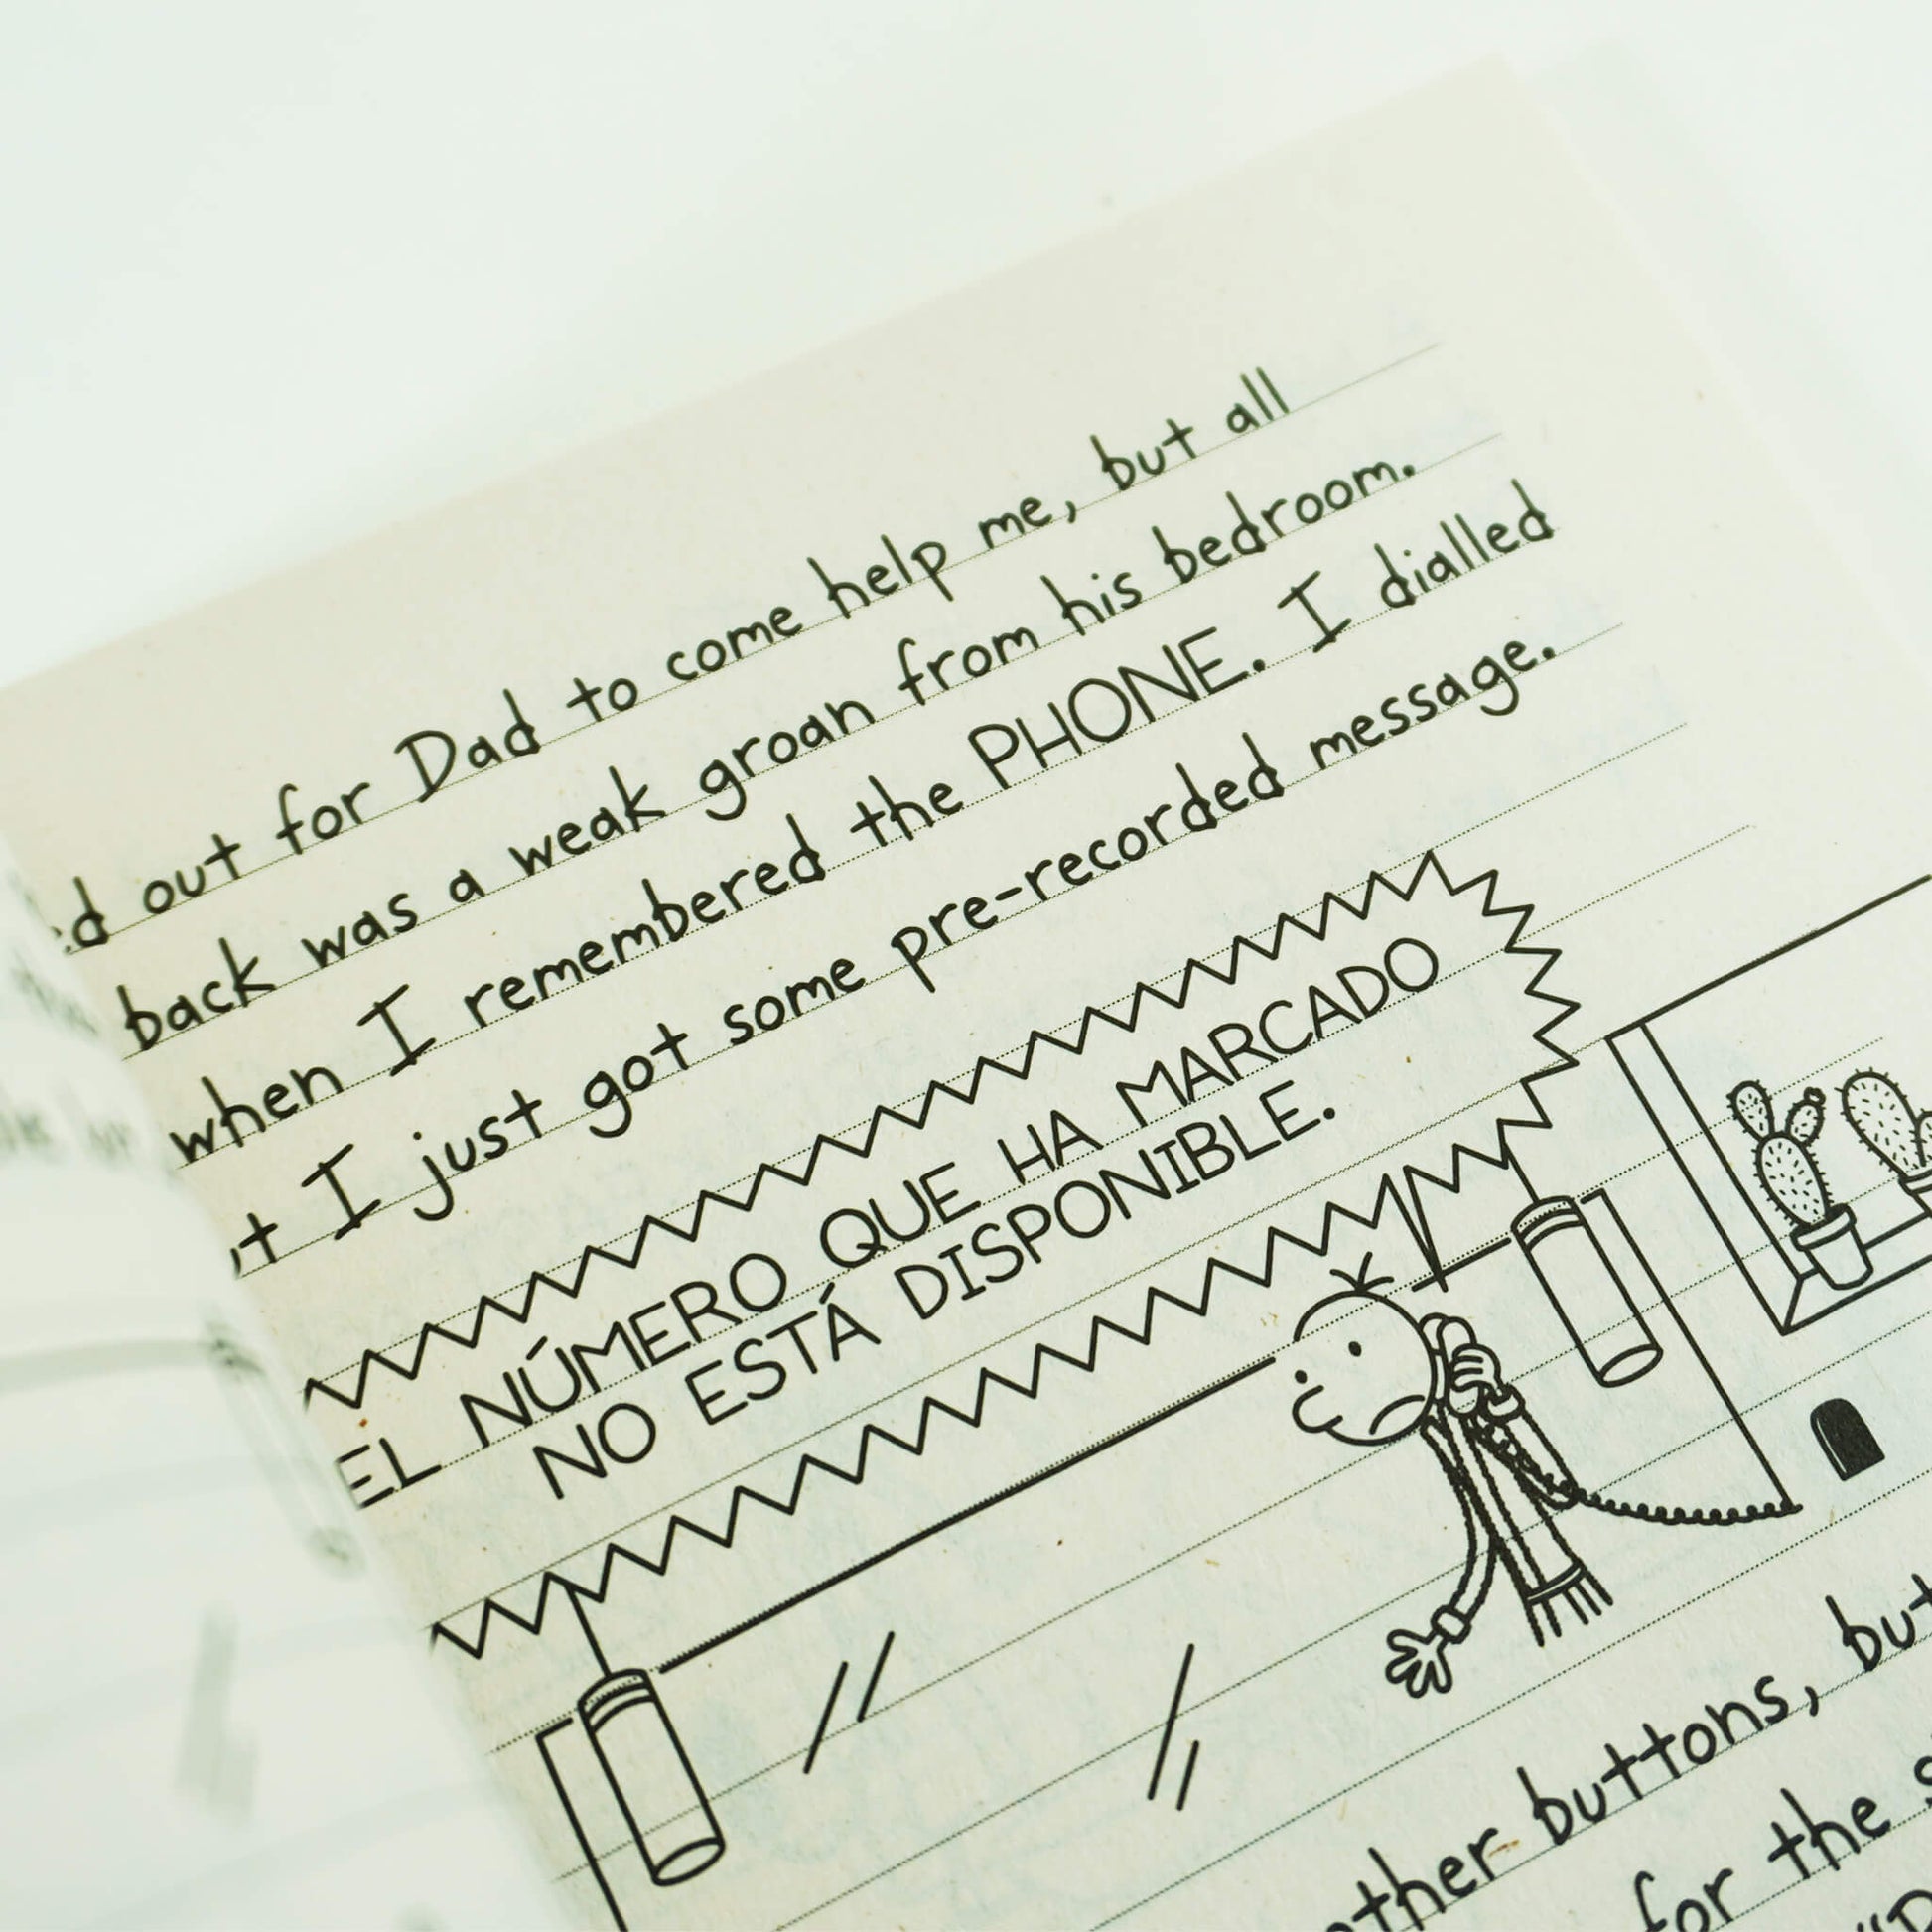 out for Dad to come help me, but all
back was a weak groan from his bedroom.
when I remembered the PHONE. I dialled
I just got some pre-recorded message.
EL NÚMERO QUE HA MARCADO
NO ESTÁ DISPONIBLE.
buttons, but
for the